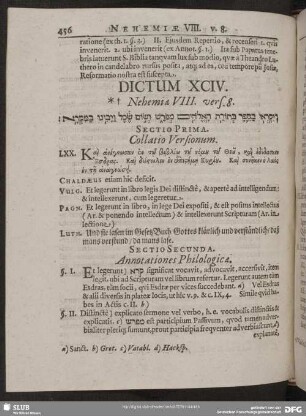 456 NEHEMIÆ VIII. v. 8.
ratione (ex th. 1. §. 2.) II. Ejusdem Repertio, & recenseri 1. quis
invenerit. 2. ubi invenerit (ex Annot. §. 1.) Ita sub Papatu tene-
bris latuerunt S. Biblia tanquam lux sub modio, quæ a Theandro Lu-
thero in candelabro rursus posita, ang ad ea, eoq́ tempore posita,
Reformatio nostra est suscepta.
DICTUM XCIV.
*† Nehemiæ VIII. vers. 8.
ויקראו בספר בתורת האלהים מפרש ושום שכל ויבינו במקרא
SECTIO PRIMA.
Collatio Versionum.
LXX.
CHALDÆUS etiam hic deficit.
VULG. Et legerunt in libro legis Dei distinctè, & apertè ad intelligendum;
& intellexerunt, cum legeretur.
PAGN. Et legerunt in libro, in lege Dei expositi, & est positus intellectus
(Ar. & ponendo intellectum) & intellexerunt Scripturam (Ar. in
lectione.)
LUTH. Und sie lasen im Gesetz Buch Gottes klärlich und verständlich/ daß
mans verstund/ da mans lase.
SECTIO SECUNDA.
Annotationes Philologicæ.
§. I. Et legerunt] קרא significat vocavit, advocavit, accersivit, item
legit, ubi ad Scripturam vel librum refertur. Legerunt autem tam
Esdras, tum socii, qui Esdræ per vices succedebant. a) Vel Esdras
& alii diversis in plateæ locis, ut hic v. 9. & c. IX, 4. Simile quid ha-
bes in Actis c. II. b)
§. II. Distinctè] explicatè sermone vel verbo, h. e. vocabulis distinctis &
explicatis. c) מפרש est participium Passivum, quod tamen adver-
bialiter plerique sumunt, prout participia frequenter adverbiascunt. d)
explanatè,
a) Sanct. b) Grot. c) Vatabl. d) Hacksp.
SLUB
DFG